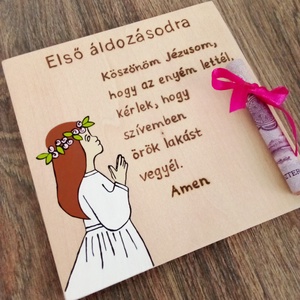 Első áldozásodra
Köszönöm Jézusom,
hogy az enyém lettél,
kérlek, hogy
szívemben
örök lakást
vegyél.
Amen